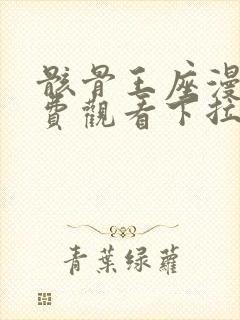 骸骨王座漫
費觀看下拉
青葉绿蘿